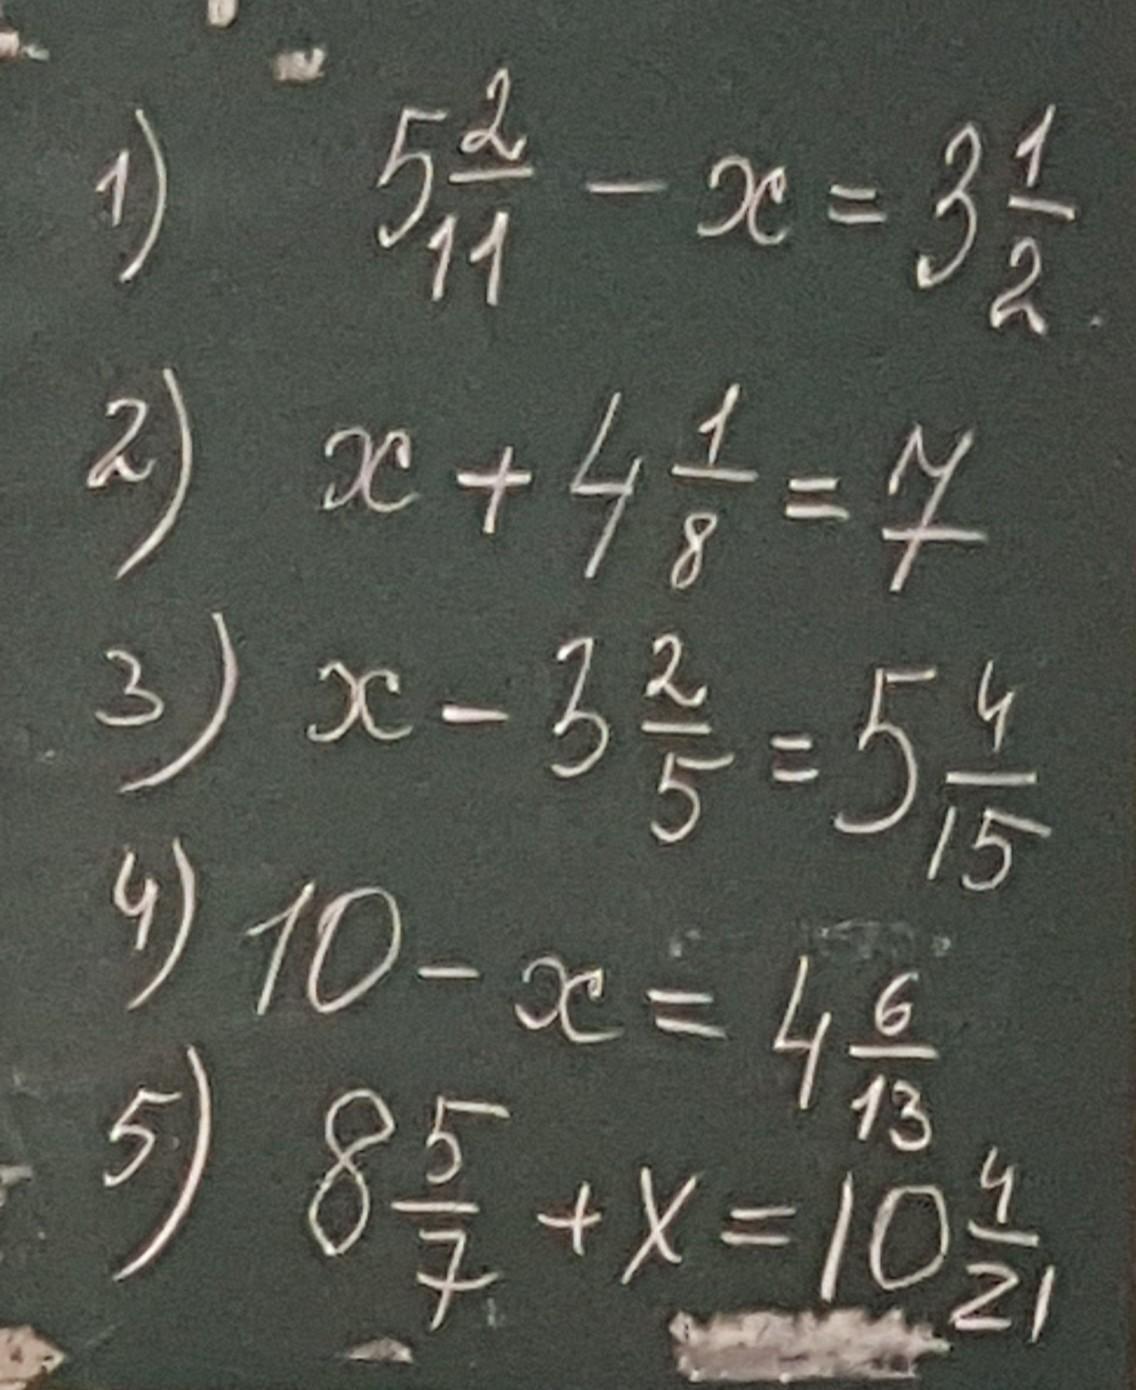 1) 5 2/11 - x = 3 1/2
2) x + 4 1/8 = 7
3) x - 3 2/5 = 5 4/15
4) 10 - x = 4 6/13
5) 8 5/7 + x = 10 4/21